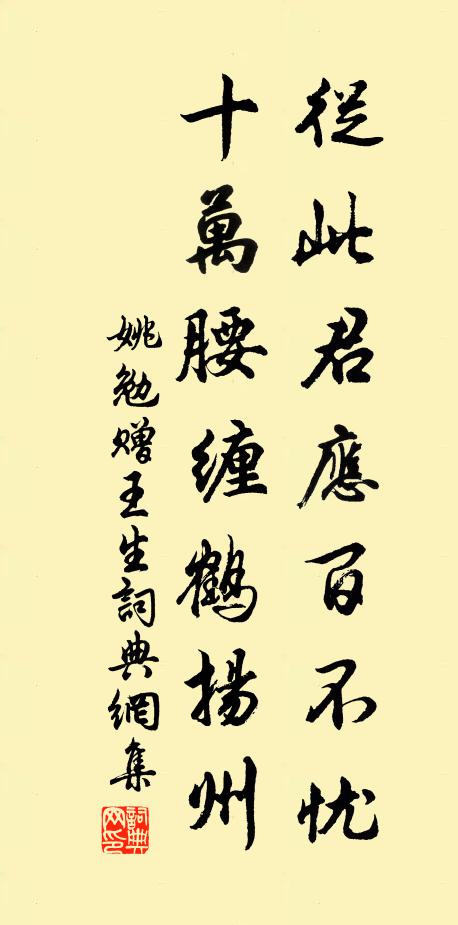 從此君應百不忧
十萬腰纏鶴揚州
姚勉贈王生詞典網集
詞典网印